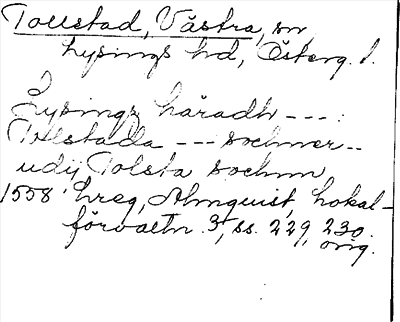 Tollstad, Västra, sn
Lysings hd, Österg. l.
Lysings häradh --- :
Tollstada --- sochner--
udij Tolsta sochnn
1558 hreg, Almquist, Lokal-
förvaltn 3, ss. 229, 230.
orig.